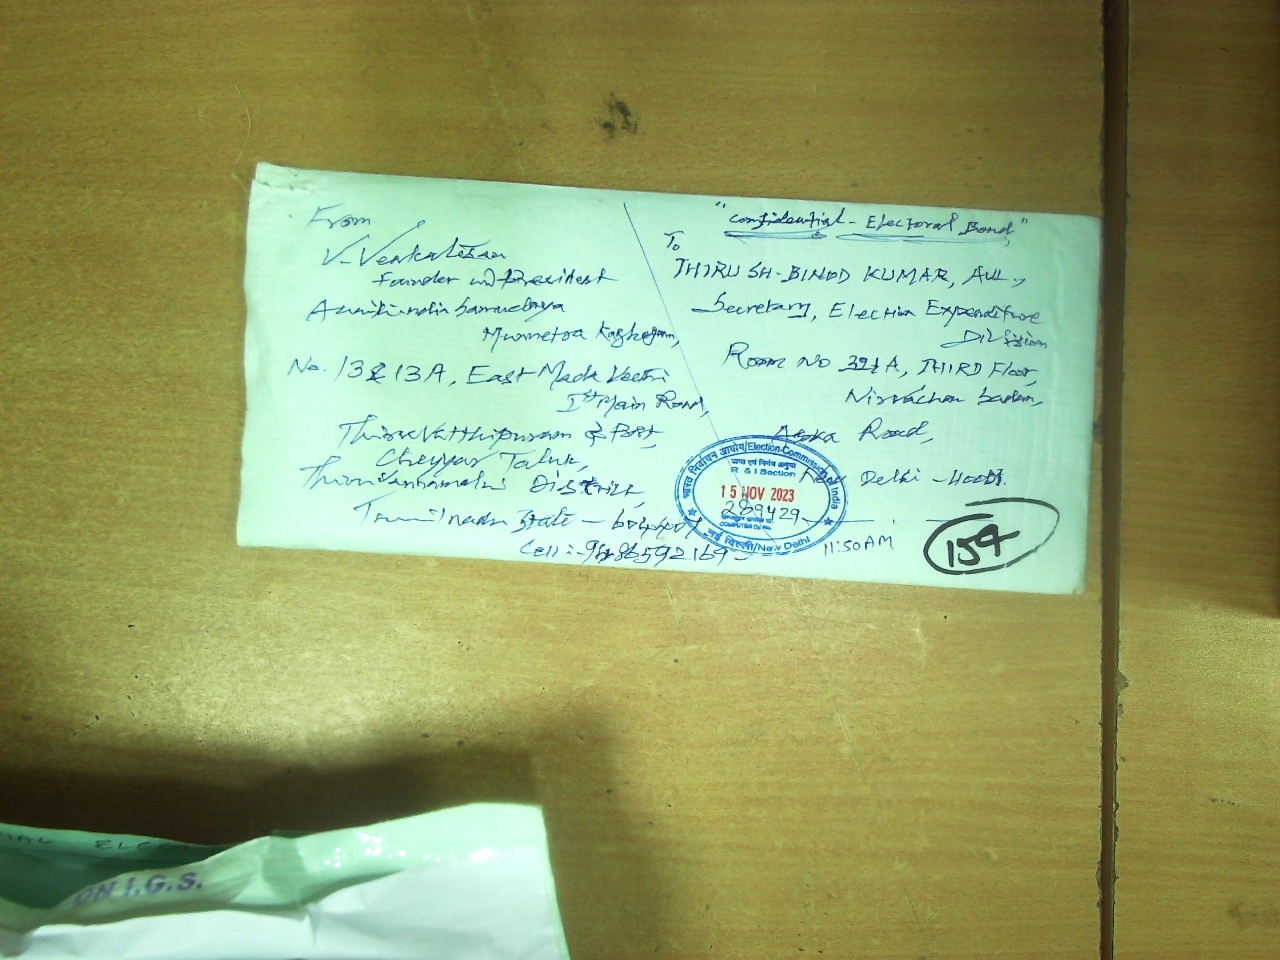 From
V. Venkatesan
Founder and President
Anaithindia Samudaya
Munnetra Kazhagam,
No. 13 & 13A, East Mada Veethi
Ist Main Road,
Thiruvatthipuram & Post,
Cheyyar Taluk,
Thiruvannamalai District,
Tamilnadu State - 604407
Cell :- 9486592169
"Confidential - Electoral Bond"
To
THIRU SH. BINOD KUMAR,
Secretary, Election Expenditure
Division
Room No 321A, THIRD Floor,
Nirvachan Sadan,
Asoka Road,
New Delhi -
भारत निर्वाचन आयोग/Election Commission of India
R & I Section
15 NOV 2023
289429
नई दिल्ली/New Delhi
11:50AM
154
ON I.G.S.